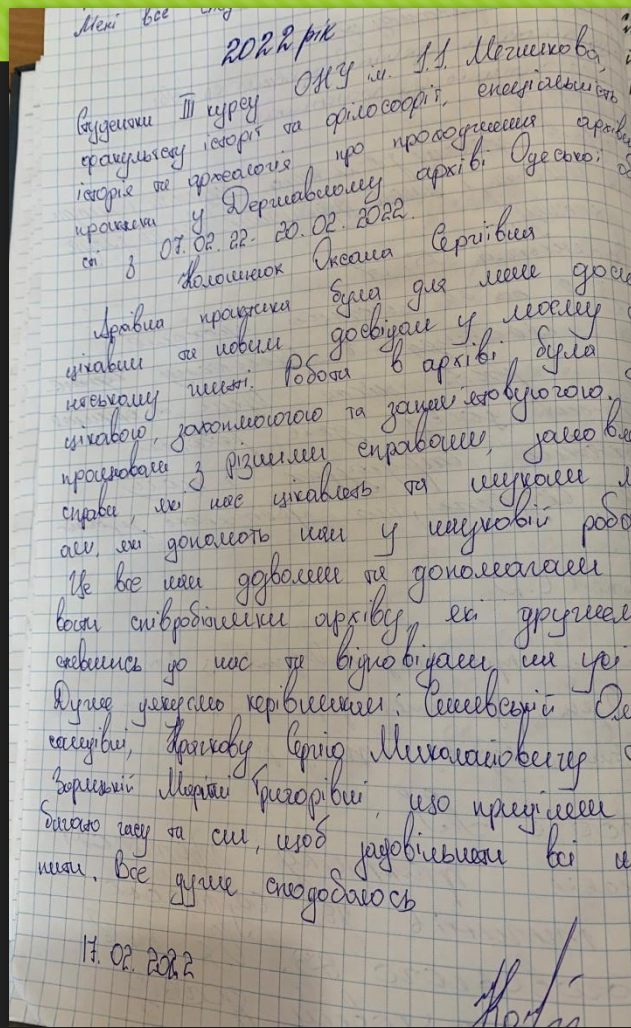 Мені все
2022 рік
Студентки III курсу ОНУ ім. І.І. Мечникова,
факультету історії та філософії, спеціальність
історія та археологія про проходження архівн
практики у Державному архіві Одеської об
сті з 07.02.22 - 20.02.2022.
Оксана Сергіївна
Архівна практика була для мене дос
цікавим та новим досвідом у моєму
нтському житті. Робота в архіві була
цікавою, захопливою та запам'ятовуючою.
працювали з різними справами, замовл
справи, які нас цікавлять та шукали м
али, які допоможуть нам у науковій робо
Це все нам дозволили та допомагали
вати співробітники архіву, які дружел
ставились до нас та відповідали на усі
Дуже дякуємо керівникам: Ол
сандрівні, Сергію Миколайовичу
Марії Григорівні, що приділили
багато часу та сил, щоб задовільнити всі н
пити. Все дуже сподобалось
17.02.2022